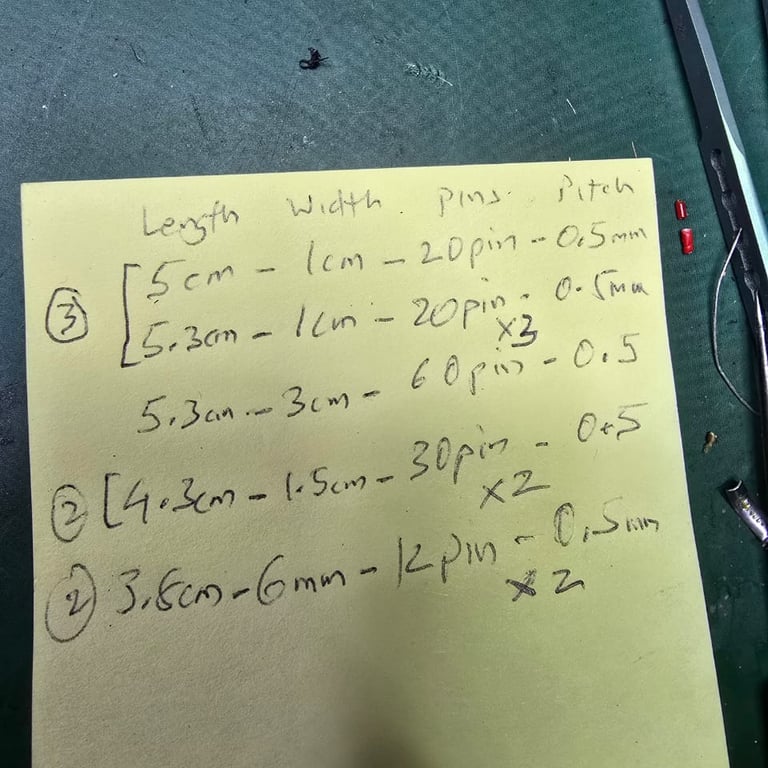 Length Width Pins Pitch
5cm - 1cm - 20pin - 0.5mm
③ 5.3cm - 1cm - 20pin - 0.5mm
x3
5.3cm - 3cm - 60pin - 0.5
② [4.3cm - 1.5cm - 30pin - 0.5
x2
② 3.8cm - 6mm - 12pin - 0.5mm
x2